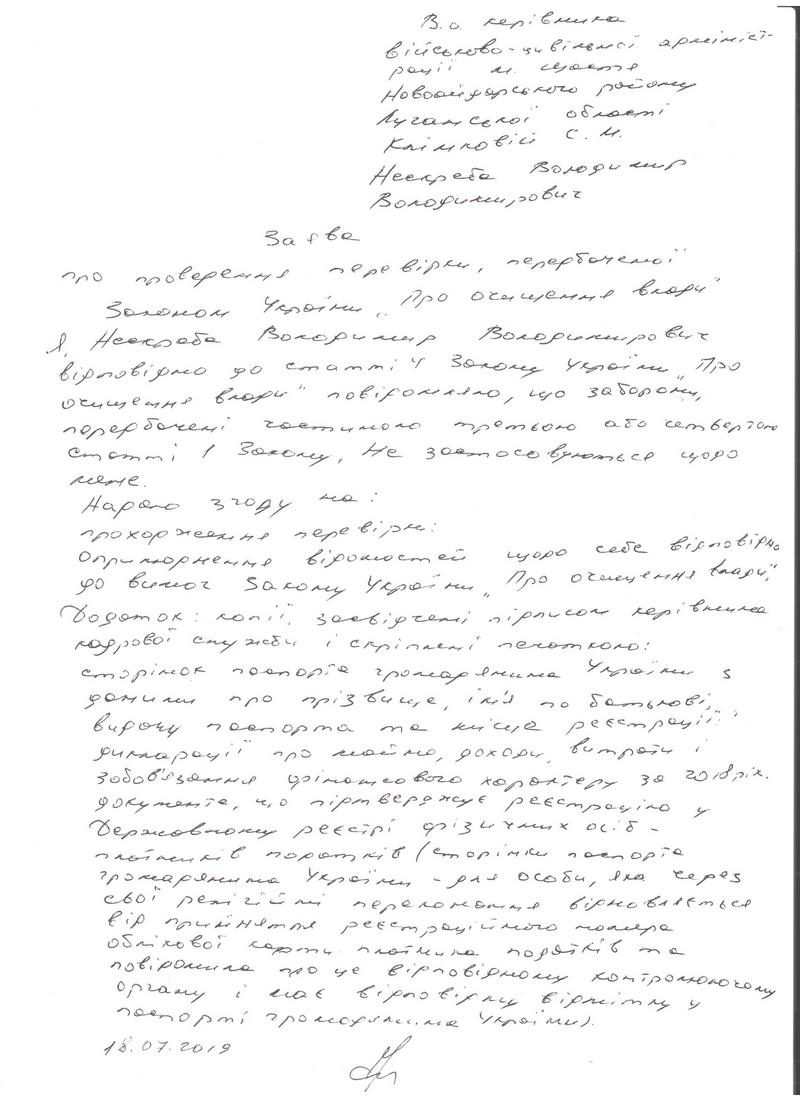 В.о. керівника
військово-цивільної адмініст-
рації м. Щастя
Новоайдарського району
Луганської області
Клімковій С.М.
Нескреба Володимир
Володимирович
Заява
про проведення перевірки, передбаченої
Законом України „Про очищення влади"
Я, Нескреба Володимир Володимирович
відповідно до статті 4 Закону України „Про
очищення влади" повідомляю, що заборони,
передбачені частиною третьою або четвертою
статті 1 Закону, не застосовуються щодо
мене.
Надаю згоду на:
проходження перевірки:
оприлюднення відомостей щодо себе відповідно
до вимог Закону України „Про очищення влади".
Додаток: копії, засвідчені підписом керівника
кадрової служби і скріплені печаткою:
сторінок паспорта громадянина України з
даними про прізвище, ім'я по батькові,
видачу паспорта та місце реєстрації:
декларації про майно, доходи, витрати і
зобов'язання фінансового характеру за 2018 рік.
документа, що підтверджує реєстрацію у
Державному реєстрі фізичних осіб -
платників податків (сторінки паспорта
громадянина України - для особи, яка через
свої релігійні переконання відмовляється
від прийняття реєстраційного номера
облікової карти платника податків та
повідомила про це відповідному контролюючому
органу і має відповідну відмітку у
паспорті громадянина України).
18.07.2019